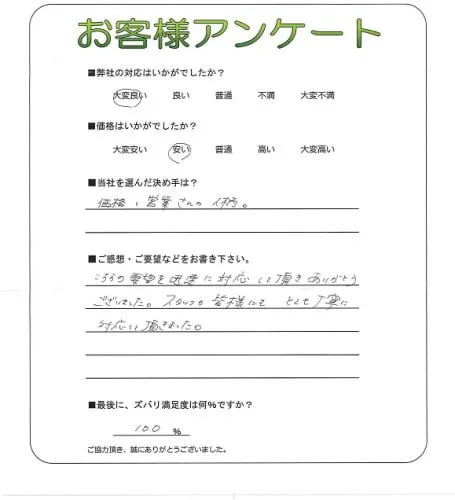 お客様アンケート
■弊社の対応はいかがでしたか?
大変良い 良い 普通 不満 大変不満
■価格はいかがでしたか?
大変安い 安い 普通 高い 大変高い
■当社を選んだ決め手は?
価格と営業さんの人柄。
■ご感想・ご要望などをお書き下さい。
こちらの要望を迅速に対応して頂きありがとう
ございました。スタッフの皆様にも とても丁寧に
対応して頂きました。
■最後に、ズバリ満足度は何%ですか?
100 %
ご協力頂き、誠にありがとうございました。